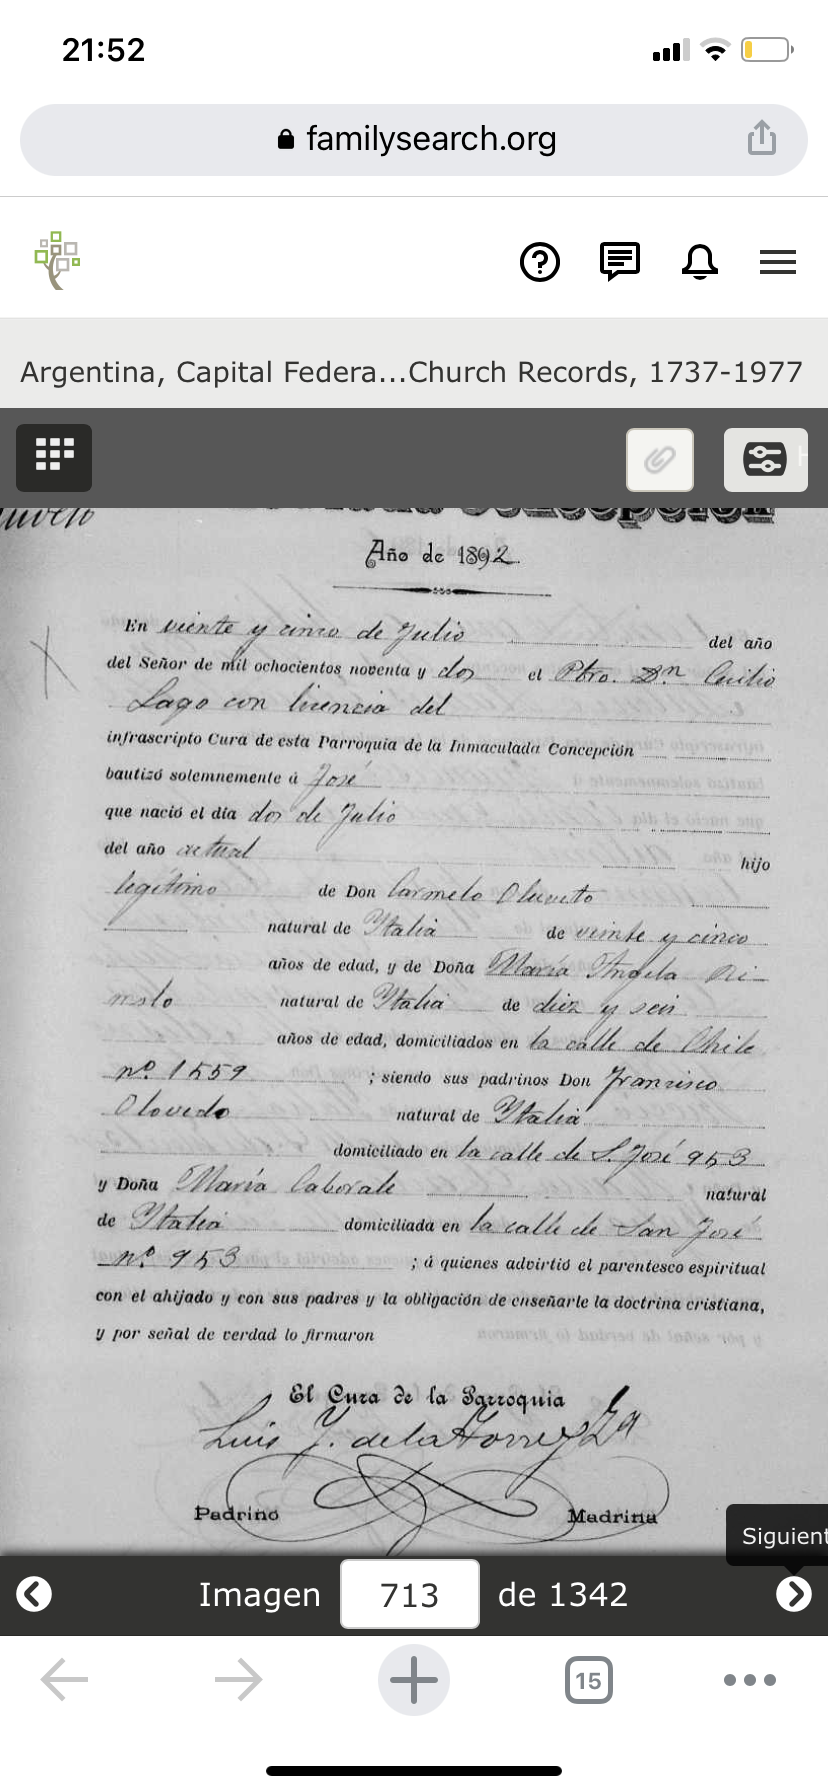 21:52
familysearch.org
Argentina, Capital Federa...Church Records, 1737-1977
Concepción
Año de 1892
En veinte y cinco de Julio del año
del Señor de mil ochocientos noventa y dos el Pbro. Dn
Lago con licencia del
infrascripto Cura de esta Parroquia de la Inmaculada Concepción
bautizó solemnemente á José
que nació el dia dos de Julio
del año actual hijo
legítimo de Don Carmelo
natural de Italia de veinte y cinco
años de edad, y de Doña María Angela
natural de Italia de diez y seis
años de edad, domiciliados en la calle de Chile
nº 1559 ; siendo sus padrinos Don Francisco
Olovedo natural de Italia
domiciliado en la calle de S. José 953
y Doña María Laborate natural
de Italia domiciliada en la calle de San José
nº 953 ; á quienes advirtió el parentesco espiritual
con el ahijado y con sus padres y la obligación de enseñarle la doctrina cristiana,
y por señal de verdad lo firmaron
El Cura de la Parroquia
Luis J. de la Torre y
Padrino Madrina
Siguient
Imagen 713 de 1342
15